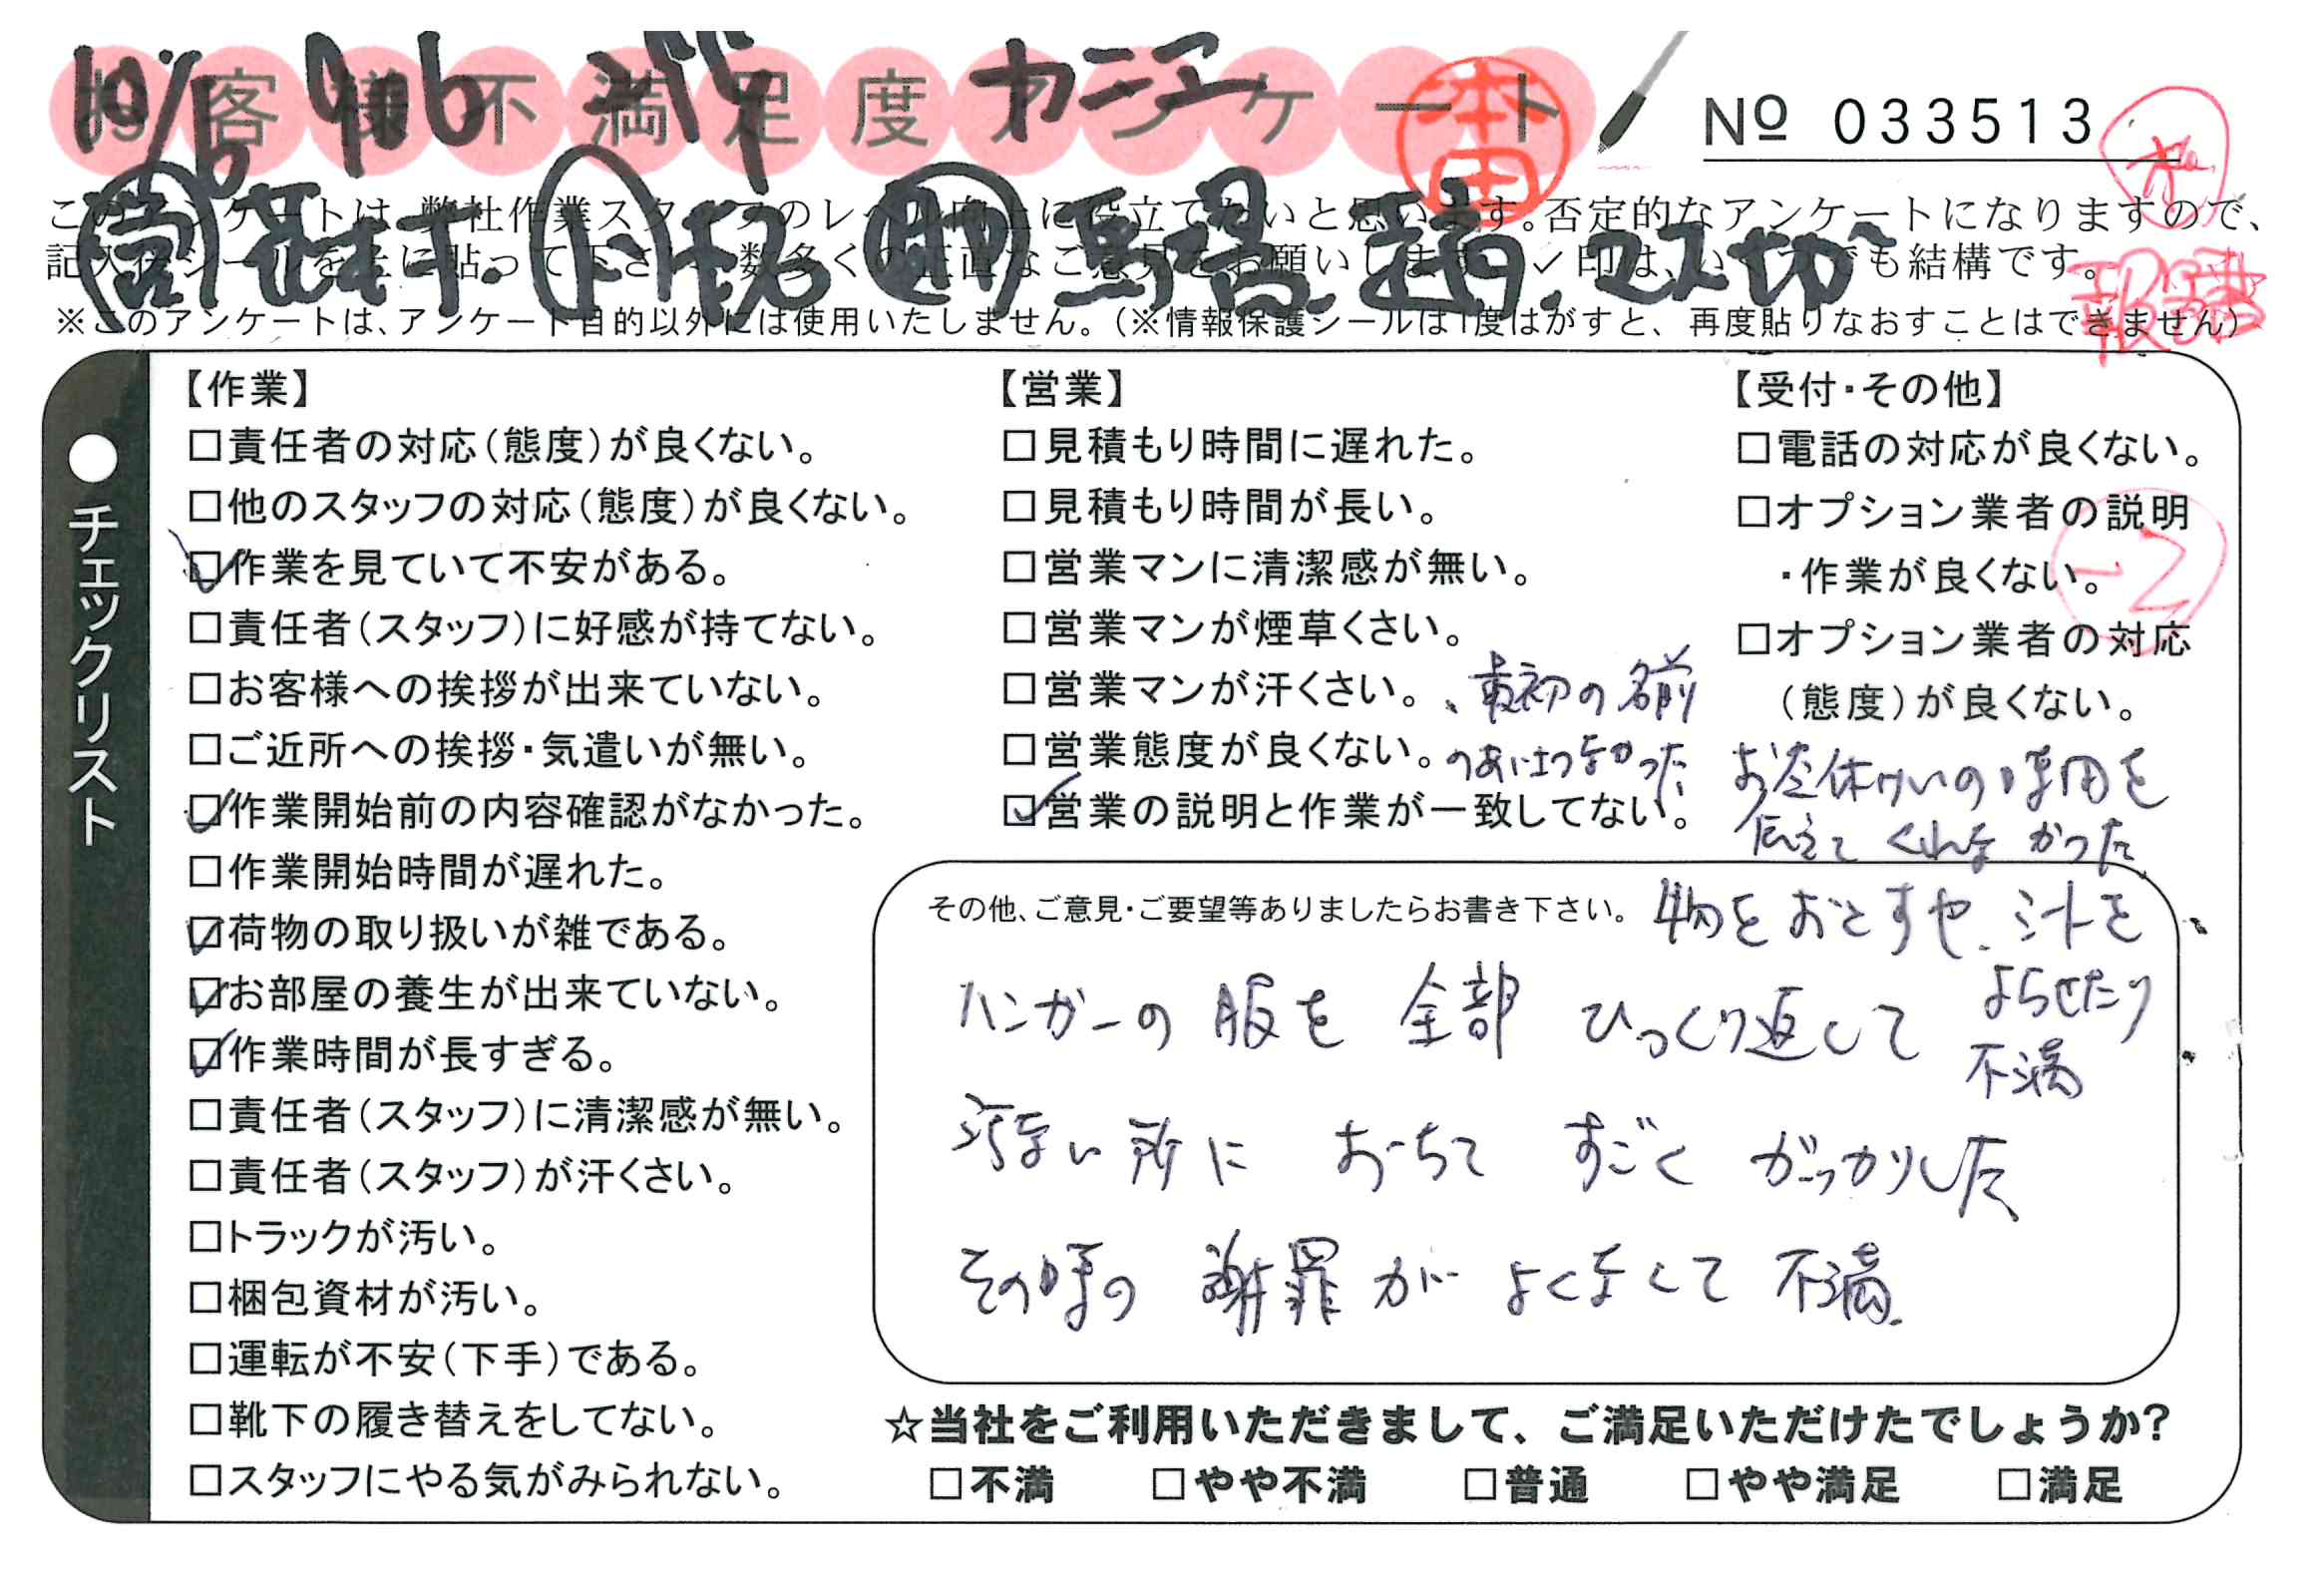 10/6 906 カニエ
お客様不満足度アンケート
本田
Nº 033513
このアンケートは、弊社作業スタッフのレベル向上に役立てたいと思います。否定的なアンケートになりますので、
記入後シールを上に貼って下さい。数多くの正直なご意見をお願いします。✓印は、いくつでも結構です。
営 小 助 馬場.
報講
※このアンケートは、アンケート目的以外には使用いたしません。(※情報保護シールは1度はがすと、再度貼りなおすことはできません)
●チェックリスト
【作業】
□責任者の対応(態度)が良くない。
□他のスタッフの対応(態度)が良くない。
☑作業を見ていて不安がある。
□責任者(スタッフ)に好感が持てない。
□お客様への挨拶が出来ていない。
□ご近所への挨拶・気遣いが無い。
☑作業開始前の内容確認がなかった。
□作業開始時間が遅れた。
☑荷物の取り扱いが雑である。
☑お部屋の養生が出来ていない。
☑作業時間が長すぎる。
□責任者(スタッフ)に清潔感が無い。
□責任者(スタッフ)が汗くさい。
□トラックが汚い。
□梱包資材が汚い。
□運転が不安(下手)である。
□靴下の履き替えをしてない。
□スタッフにやる気がみられない。
【営業】
□見積もり時間に遅れた。
□見積もり時間が長い。
□営業マンに清潔感が無い。
□営業マンが煙草くさい。
□営業マンが汗くさい。
□営業態度が良くない。
☑営業の説明と作業が一致してない。
、最初の名前
のあいさつなかった
【受付・その他】
□電話の対応が良くない。
□オプション業者の説明
・作業が良くない。
□オプション業者の対応
(態度)が良くない。
-2
お昼休けいの時間を
伝えてくれなかった
その他、ご意見・ご要望等ありましたらお書き下さい。
物をおとすや、シートを
よらせたり
不満
ハンガーの服を全部ひっくり返して
汚ない所におちてすごくがっかりした
その時の謝罪がよくなくて不満.
☆当社をご利用いただきまして、ご満足いただけたでしょうか?
□不満 □やや不満 □普通 □やや満足 □満足